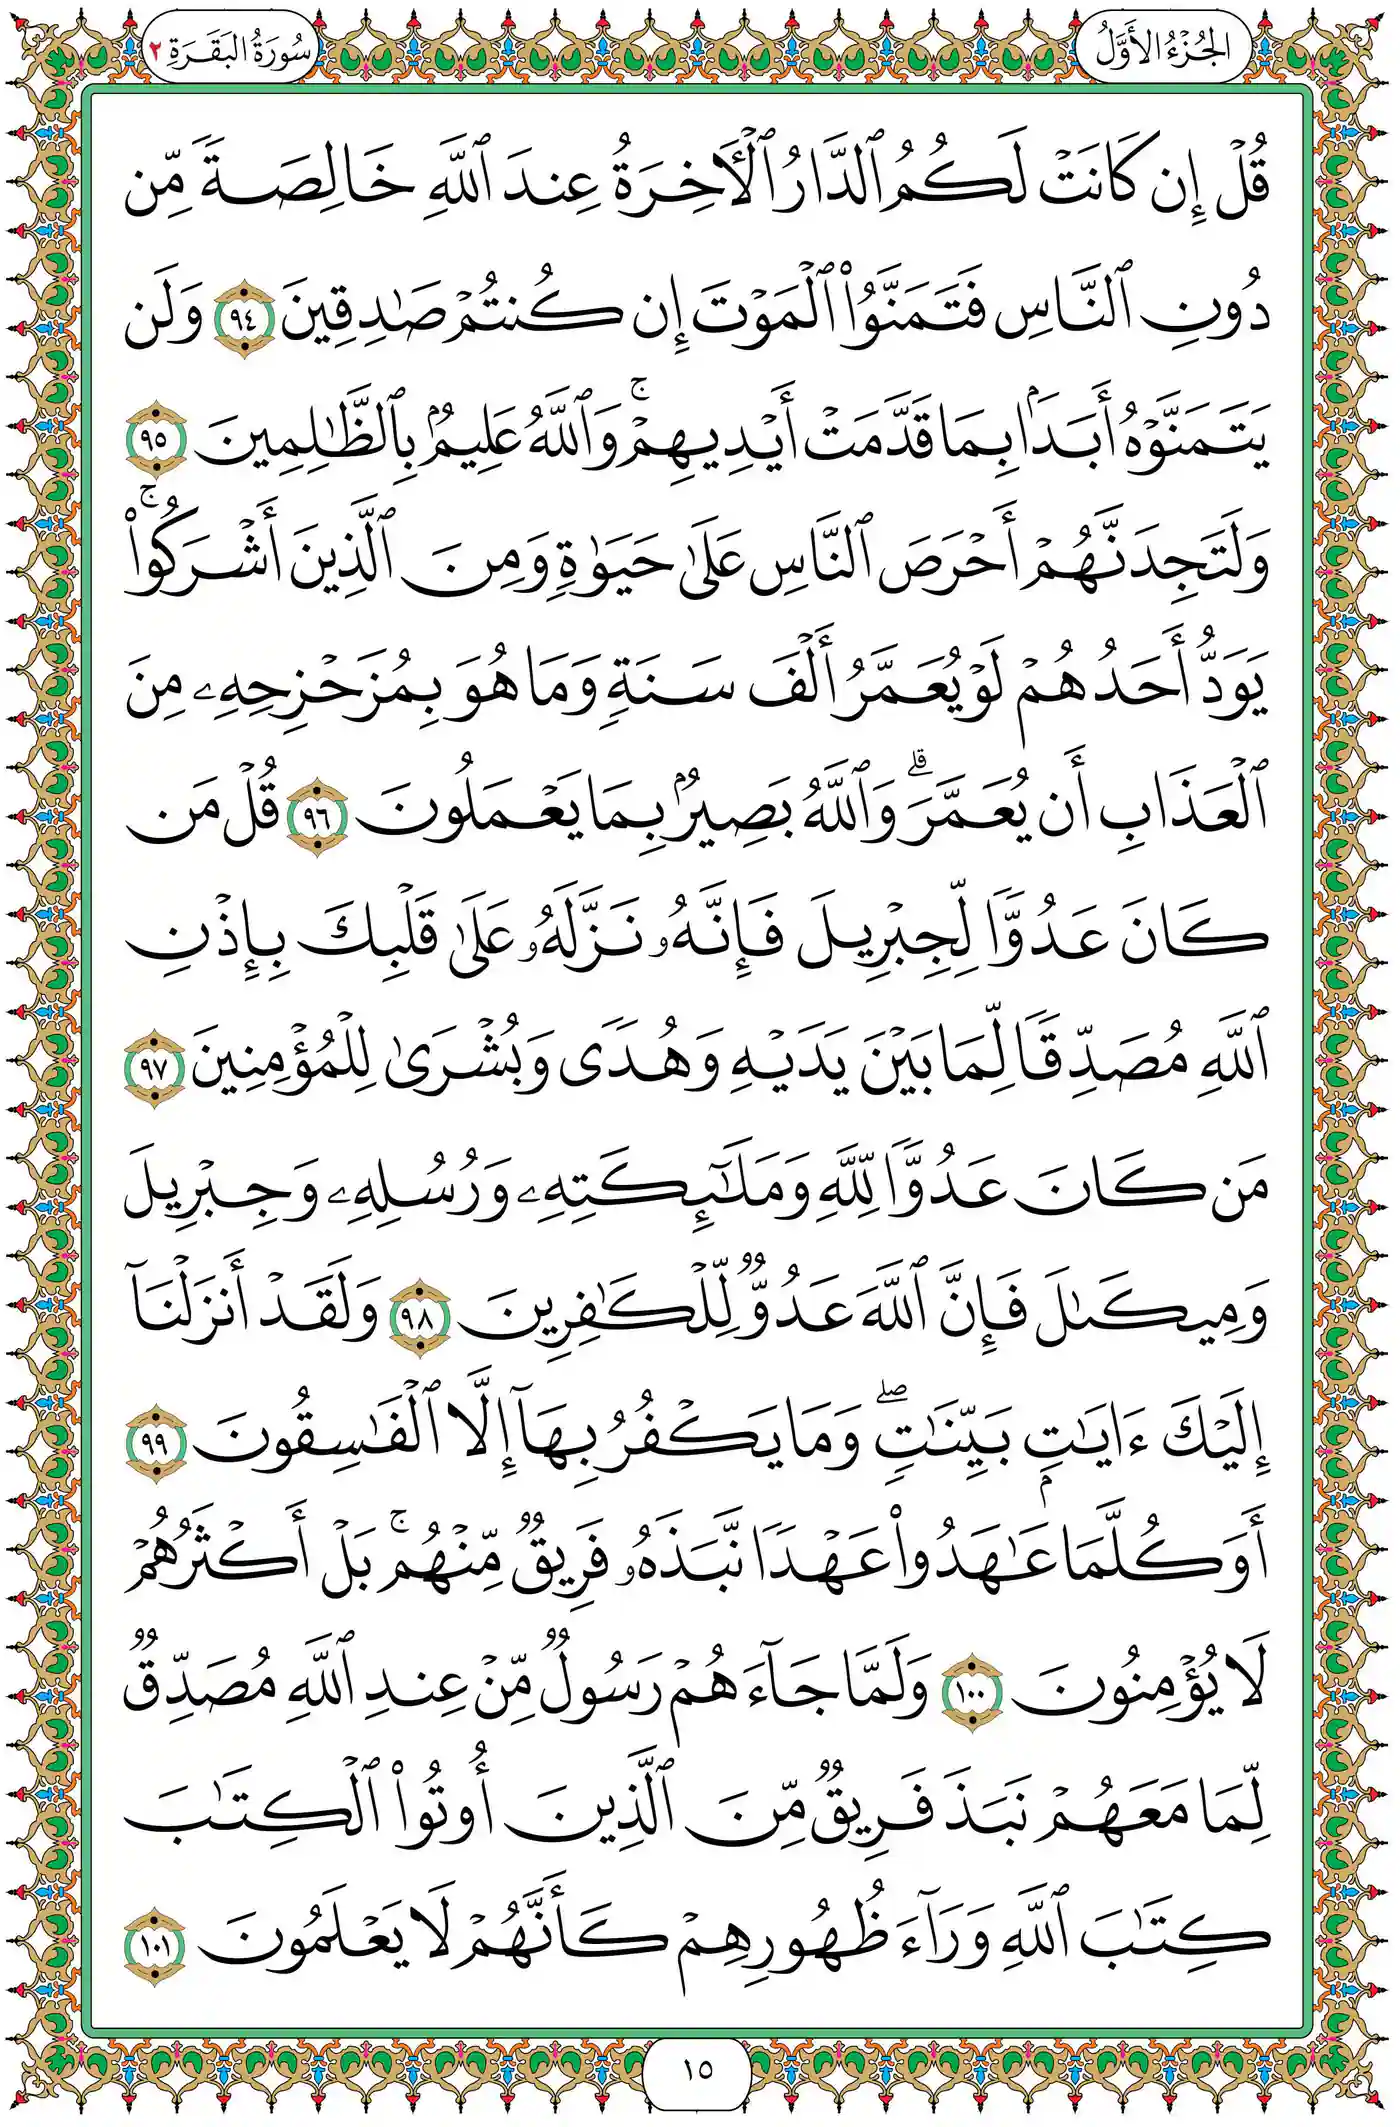 الجُزْءُ الأَوَّلُ
سُورَةُ البَقَرَةِ ٢
قُلْ إِن كَانَتْ لَكُمُ ٱلدَّارُ ٱلْأٓخِرَةُ عِندَ ٱللَّهِ خَالِصَةً مِّن
دُونِ ٱلنَّاسِ فَتَمَنَّوُا۟ ٱلْمَوْتَ إِن كُنتُمْ صَٰدِقِينَ ٩٤ وَلَن
يَتَمَنَّوْهُ أَبَدًۢا بِمَا قَدَّمَتْ أَيْدِيهِمْ ۚ وَٱللَّهُ عَلِيمٌۢ بِٱلظَّٰلِمِينَ ٩٥
وَلَتَجِدَنَّهُمْ أَحْرَصَ ٱلنَّاسِ عَلَىٰ حَيَوٰةٍ وَمِنَ ٱلَّذِينَ أَشْرَكُوا۟ ۚ
يَوَدُّ أَحَدُهُمْ لَوْ يُعَمَّرُ أَلْفَ سَنَةٍ وَمَا هُوَ بِمُزَحْزِحِهِۦ مِنَ
ٱلْعَذَابِ أَن يُعَمَّرَ ۗ وَٱللَّهُ بَصِيرٌۢ بِمَا يَعْمَلُونَ ٩٦ قُلْ مَن
كَانَ عَدُوًّا لِّجِبْرِيلَ فَإِنَّهُۥ نَزَّلَهُۥ عَلَىٰ قَلْبِكَ بِإِذْنِ
ٱللَّهِ مُصَدِّقًا لِّمَا بَيْنَ يَدَيْهِ وَهُدًى وَبُشْرَىٰ لِلْمُؤْمِنِينَ ٩٧
مَن كَانَ عَدُوًّا لِّلَّهِ وَمَلَٰٓئِكَتِهِۦ وَرُسُلِهِۦ وَجِبْرِيلَ
وَمِيكَىٰلَ فَإِنَّ ٱللَّهَ عَدُوٌّ لِّلْكَٰفِرِينَ ٩٨ وَلَقَدْ أَنزَلْنَآ
إِلَيْكَ ءَايَٰتٍۭ بَيِّنَٰتٍ ۖ وَمَا يَكْفُرُ بِهَآ إِلَّا ٱلْفَٰسِقُونَ ٩٩
أَوَكُلَّمَا عَٰهَدُوا۟ عَهْدًا نَّبَذَهُۥ فَرِيقٌ مِّنْهُم ۚ بَلْ أَكْثَرُهُمْ
لَا يُؤْمِنُونَ ١٠٠ وَلَمَّا جَآءَهُمْ رَسُولٌ مِّنْ عِندِ ٱللَّهِ مُصَدِّقٌ
لِّمَا مَعَهُمْ نَبَذَ فَرِيقٌ مِّنَ ٱلَّذِينَ أُوتُوا۟ ٱلْكِتَٰبَ
كِتَٰبَ ٱللَّهِ وَرَآءَ ظُهُورِهِمْ كَأَنَّهُمْ لَا يَعْلَمُونَ ١٠١
١٥